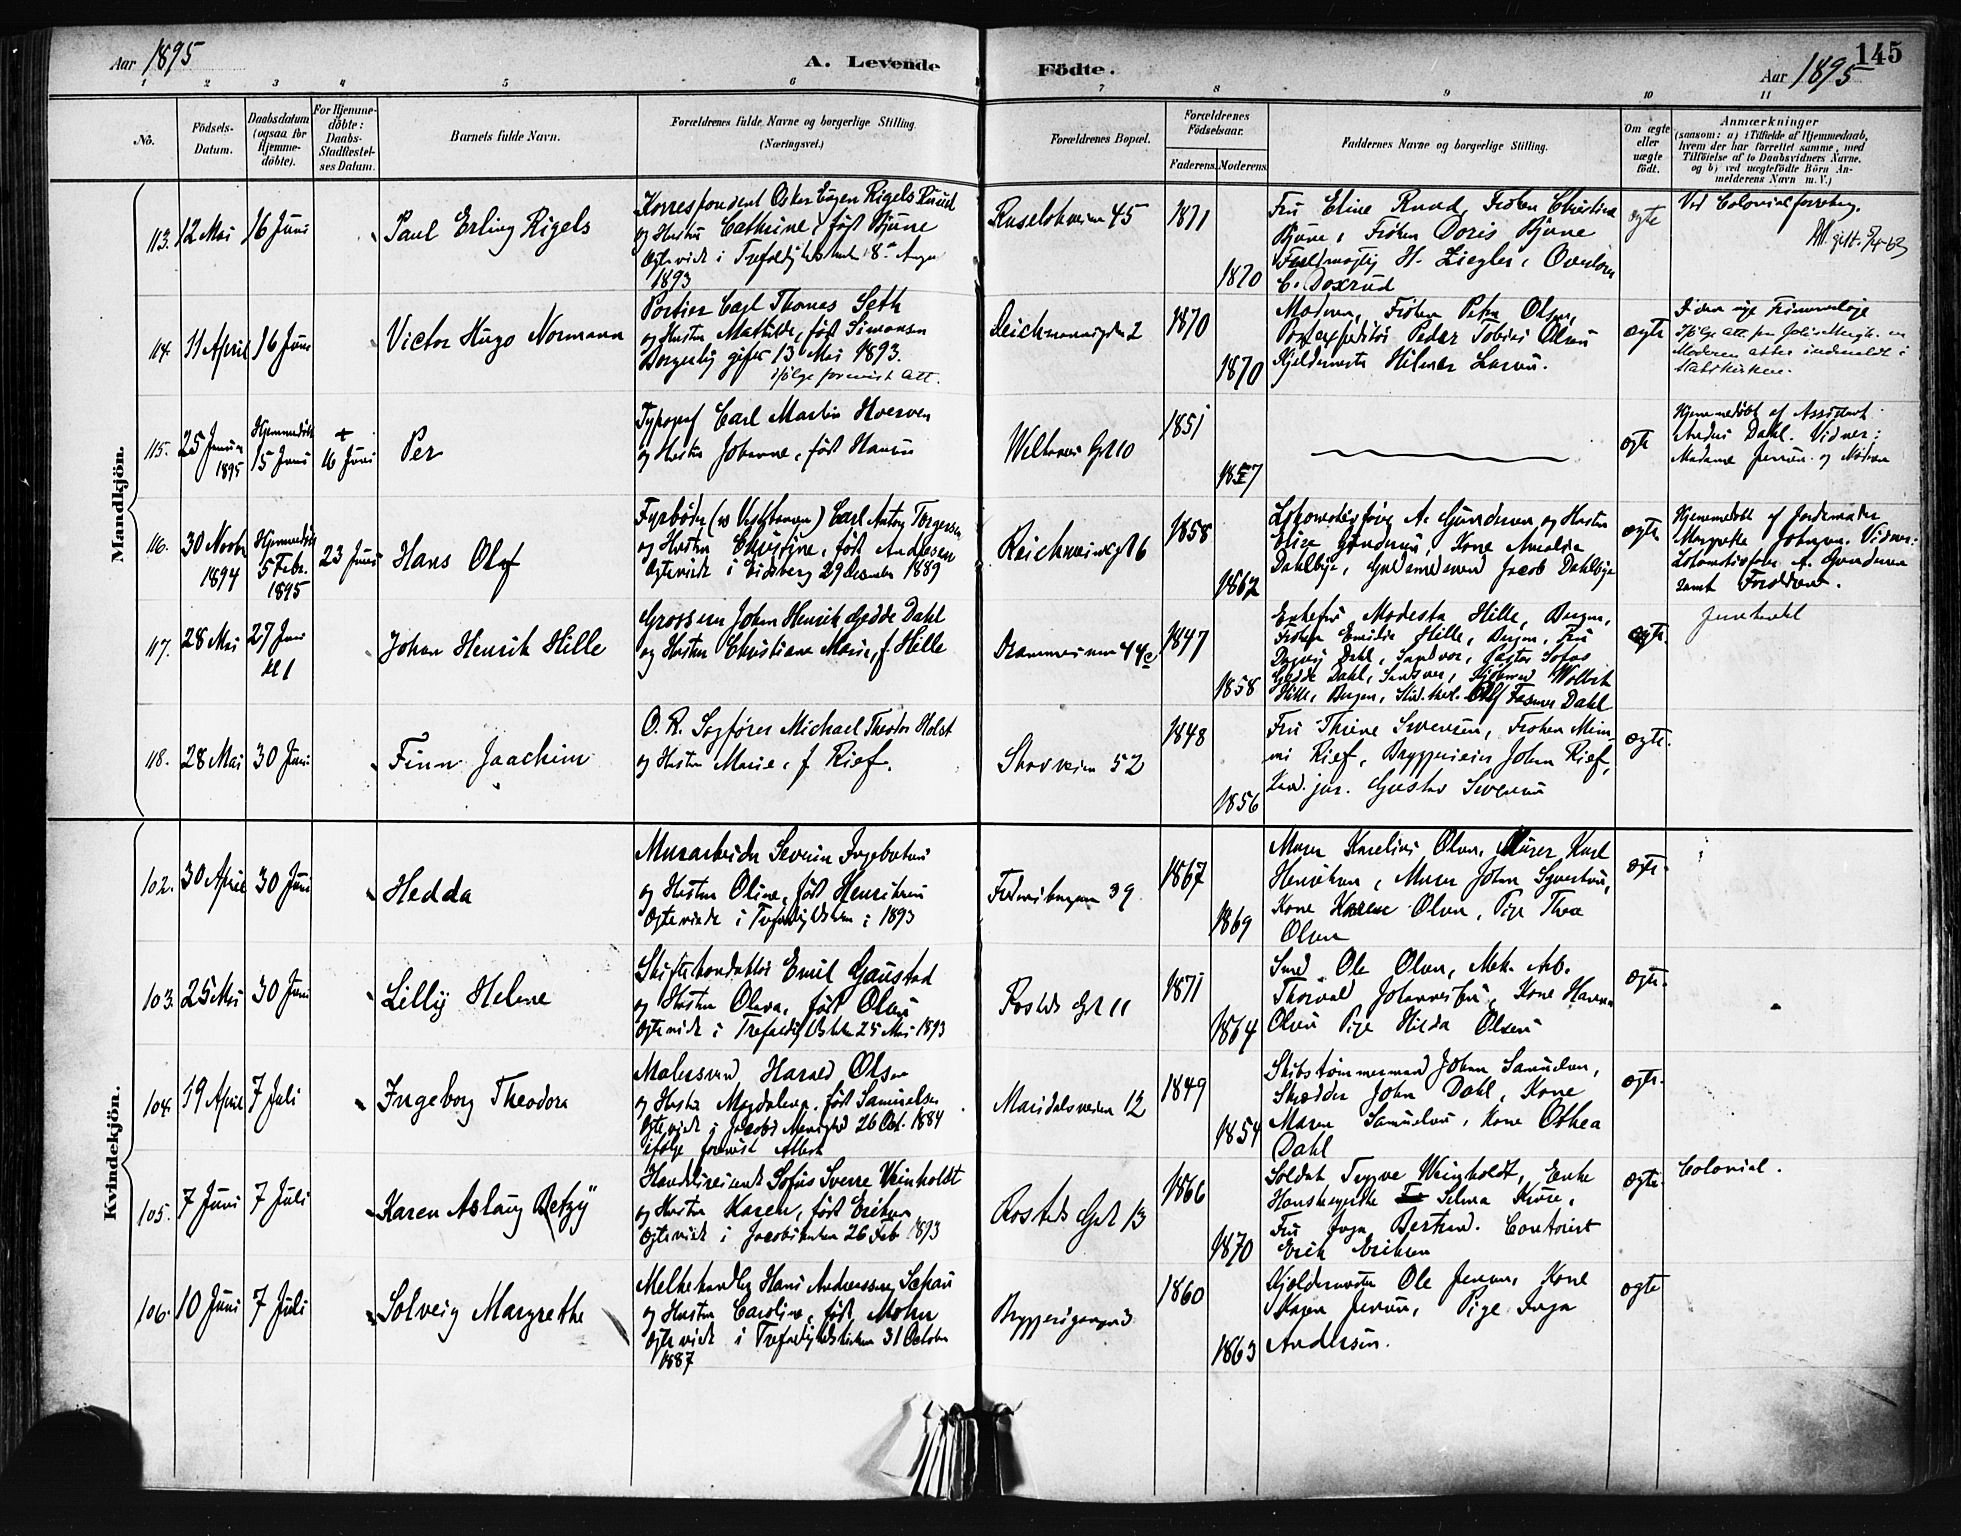 Aar 1895
A. Levende
Födte.
Aar 1895
145
1 2 3 4 5 6 7 8 9 10 11
No.
Födsels-
Datum.
Daabsdatum
(ogsaa for
Hjemme-
döbte).
For Hjemme-
döbte:
Daabs-
Stadfæstel-
ses Datum.
Barnets fulde Navn.
Forældrenes fulde Navne og borgerlige Stilling.
(Næringsvei.)
Forældrenes Bopæl.
Forældrenes
Födselsaar.
Faderens. Moderens.
Faddernes Navne og borgerlige Stilling.
Om ægte
eller
uægte
födt.
Anmærkninger
(saasom: a) i Tilfælde af Hjemmedaab,
hvem der har forrettet samme, med
Tilföielse af to Daabsvidners Navne,
og b) ved uægtefödte Börn An-
melderens Navn m. V.)
Mandkjön.
113. 12 Mai 16 Juni
Paul Erling Rigels
Korrespondent Oskar Eugen Rigels Ruud
og Hustru Cathrine, født Bjune
Ægteviede i Trefoldighedskirken 8 Aug
1893
Ruseløkveien 45
1871
1870
Fru Eline Ruud, Frøken Christine
Bjune, Frøken Doris Bjune
Fuldmægtig H. Ziegler,
C. Doxrud
ægte
Ved Colonial
gift
114. 11 April 16 Juni
Victor Hugo Normann
Portier Carl Thomas Seth
og Hustru Mathilde, født Simonsen
Borgerlig gifte 13 Mai 1893.
ifølge forevist Att.
Deichmannsgden 2
1870
1870
Moderen, Frøken Petra Olsen,
Postexpeditør Peder Tobias Olsen
Kjeldermester Hilmar Larsen.
ægte
Moderen atter indmeldt i
Statskirken.
115. 25 Januar
1895
Hjemmedøbt
15 Juni
+
16 Juni
Per
Typograf Carl Martin Hverven
og Hustru Johanne, født Hansen
Welhavens Gd 10
1851
1857
ægte
Hjemmedøbt af Assistent
Andreas Dahl. Vidner:
Madame Jensen og Moderen
116. 30 Novbr
1894
Hjemmedøbt
5 Febr.
1895
23 Juni
Hans Olaf
Fyrbøder (v Vestbanen) Carl Anton Torgersen
og Hustru Christine, født Andresen
Ægteviede i Eidsberg 29 December 1889
Reichweinsgt 6
1858
1862
Lokomotivfører A. Gundersen og Hustru
Elise Gundersen, Kone Amalie
Dahlbye, Guldsmedsvend Jacob Dahlbye
ægte
Hjemmedøbt af Jordemoder
Margrethe Johnsen. Vidner:
Lokomotivfører A. Gundersen
samt Forældrene.
117. 28 Mai 27 Juni
kl 1
Johan Henrik Hille
Grosserer Johan Henrik Gedde Dahl
og Hustru Christiane Marie, f. Hille
Drammensveien 44c
1847
1858
Enkefru Modesta Hille, Bergen,
Frøken Emilie Hille, Bergen, Fru
Dagny Dahl, Sandvær, Pastor Sofus
Gedde Dahl, Sandvær, Wollert
Hille, Bergen, Stud. med. Olaf Fasmer Dahl
ægte.
118. 28 Mai 30 Juni
Finn Joachim
O. R. Sagfører Michael Theodor Holst
og Hustru Marie, f. Rief.
Skovveien 52
1848
1856
Fru Thrine Svensen, Frøken Mim-
mi Rief, Bryggerieier Johan Rief,
Kand. jur. Gustav Svensen
ægte.
Kvindekjön.
102. 30 April 30 Juni
Hedda
Murarbeider Severin Ingebretsen
og Hustru Oline, født Henriksen
Ægteviede i Trefoldighedskirken i 1893
Fredensborgveien 39
1867
1869
Murer Karelius Olsen, Murer Karl
Henriksen, Murer Johan Syvertsen,
Kone Karen Olsen, Pige Thea
Olsen
ægte.
103. 25 Mai 30 Juni
Lilly Helene
Skiftekonduktør Emil Gaustad
og Hustru Olava, født Olsen
Ægteviede i Trefoldighedskirken 25 Mai 1893
Rosteds Gd 11
1871
1864
Smed Ole Olsen, Mek. Arb.
Thorvald Johannessen, Kone Hanna
Olsen Pige Hilda Olsen
ægte.
104. 19 April 7 Juli
Ingeborg Theodora
Malersvend Harald Olsen
og Hustru Magdalena, født Samuelsen
Ægteviede i Jacobs Menighed 26 Oct. 1884
ifølge forevist Attest
Maridalsveien 12
1849
1854
Skibstømmermand Johan Samuelsen,
Skrædder John Dahl, Kone
Maren Samuelsen, Kone Othea
Dahl
ægte.
105. 7 Juni 7 Juli
Karen Aslaug Betzy
Handelsreisende Sofus Sverre Weinholdt
og Hustru Karen, født Eriksen
Ægteviede i Jacobskirken 26 Feb 1893
Rosteds Gd 13
1866
1870
Soldat Trygve Weinholdt, Enke
Selma Kruse,
Fru Inga Bertrand. Contorist
Erik Eriksen
ægte.
Colonial.
106. 10 Juni 7 Juli
Solveig Margrethe
Melkehandler Hans Andreassen Schau
og Hustru Caroline, født Mohn
Ægteviede i Trefoldighedskirken 31 October
1887
Bryggerigangen 3
1860
1863
Kjeldermester Ole Jensen, Kone
Karen Jensen, Pige Inga
Andersen.
ægte